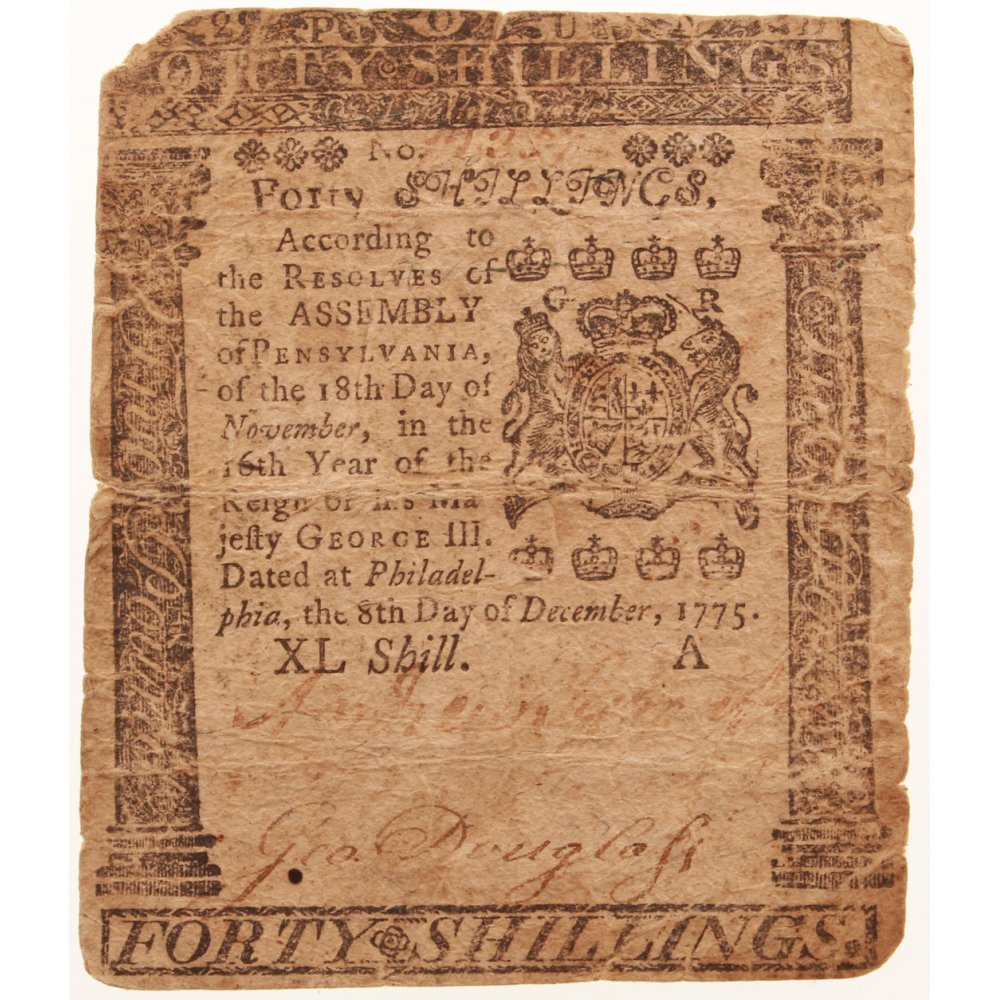 2 POUND
FORTY SHILLINGS
No.
Forty SHILLINGS,
According to
the RESOLVES of
the ASSEMBLY
of PENSYLVANIA,
of the 18th Day of
November, in the
16th Year of the
Reign of his Ma
jeſty GEORGE III.
Dated at Philadel-
phia, the 8th Day of December, 1775.
XL Shill. A
G R
Geo. Douglaſs
FORTY SHILLINGS.